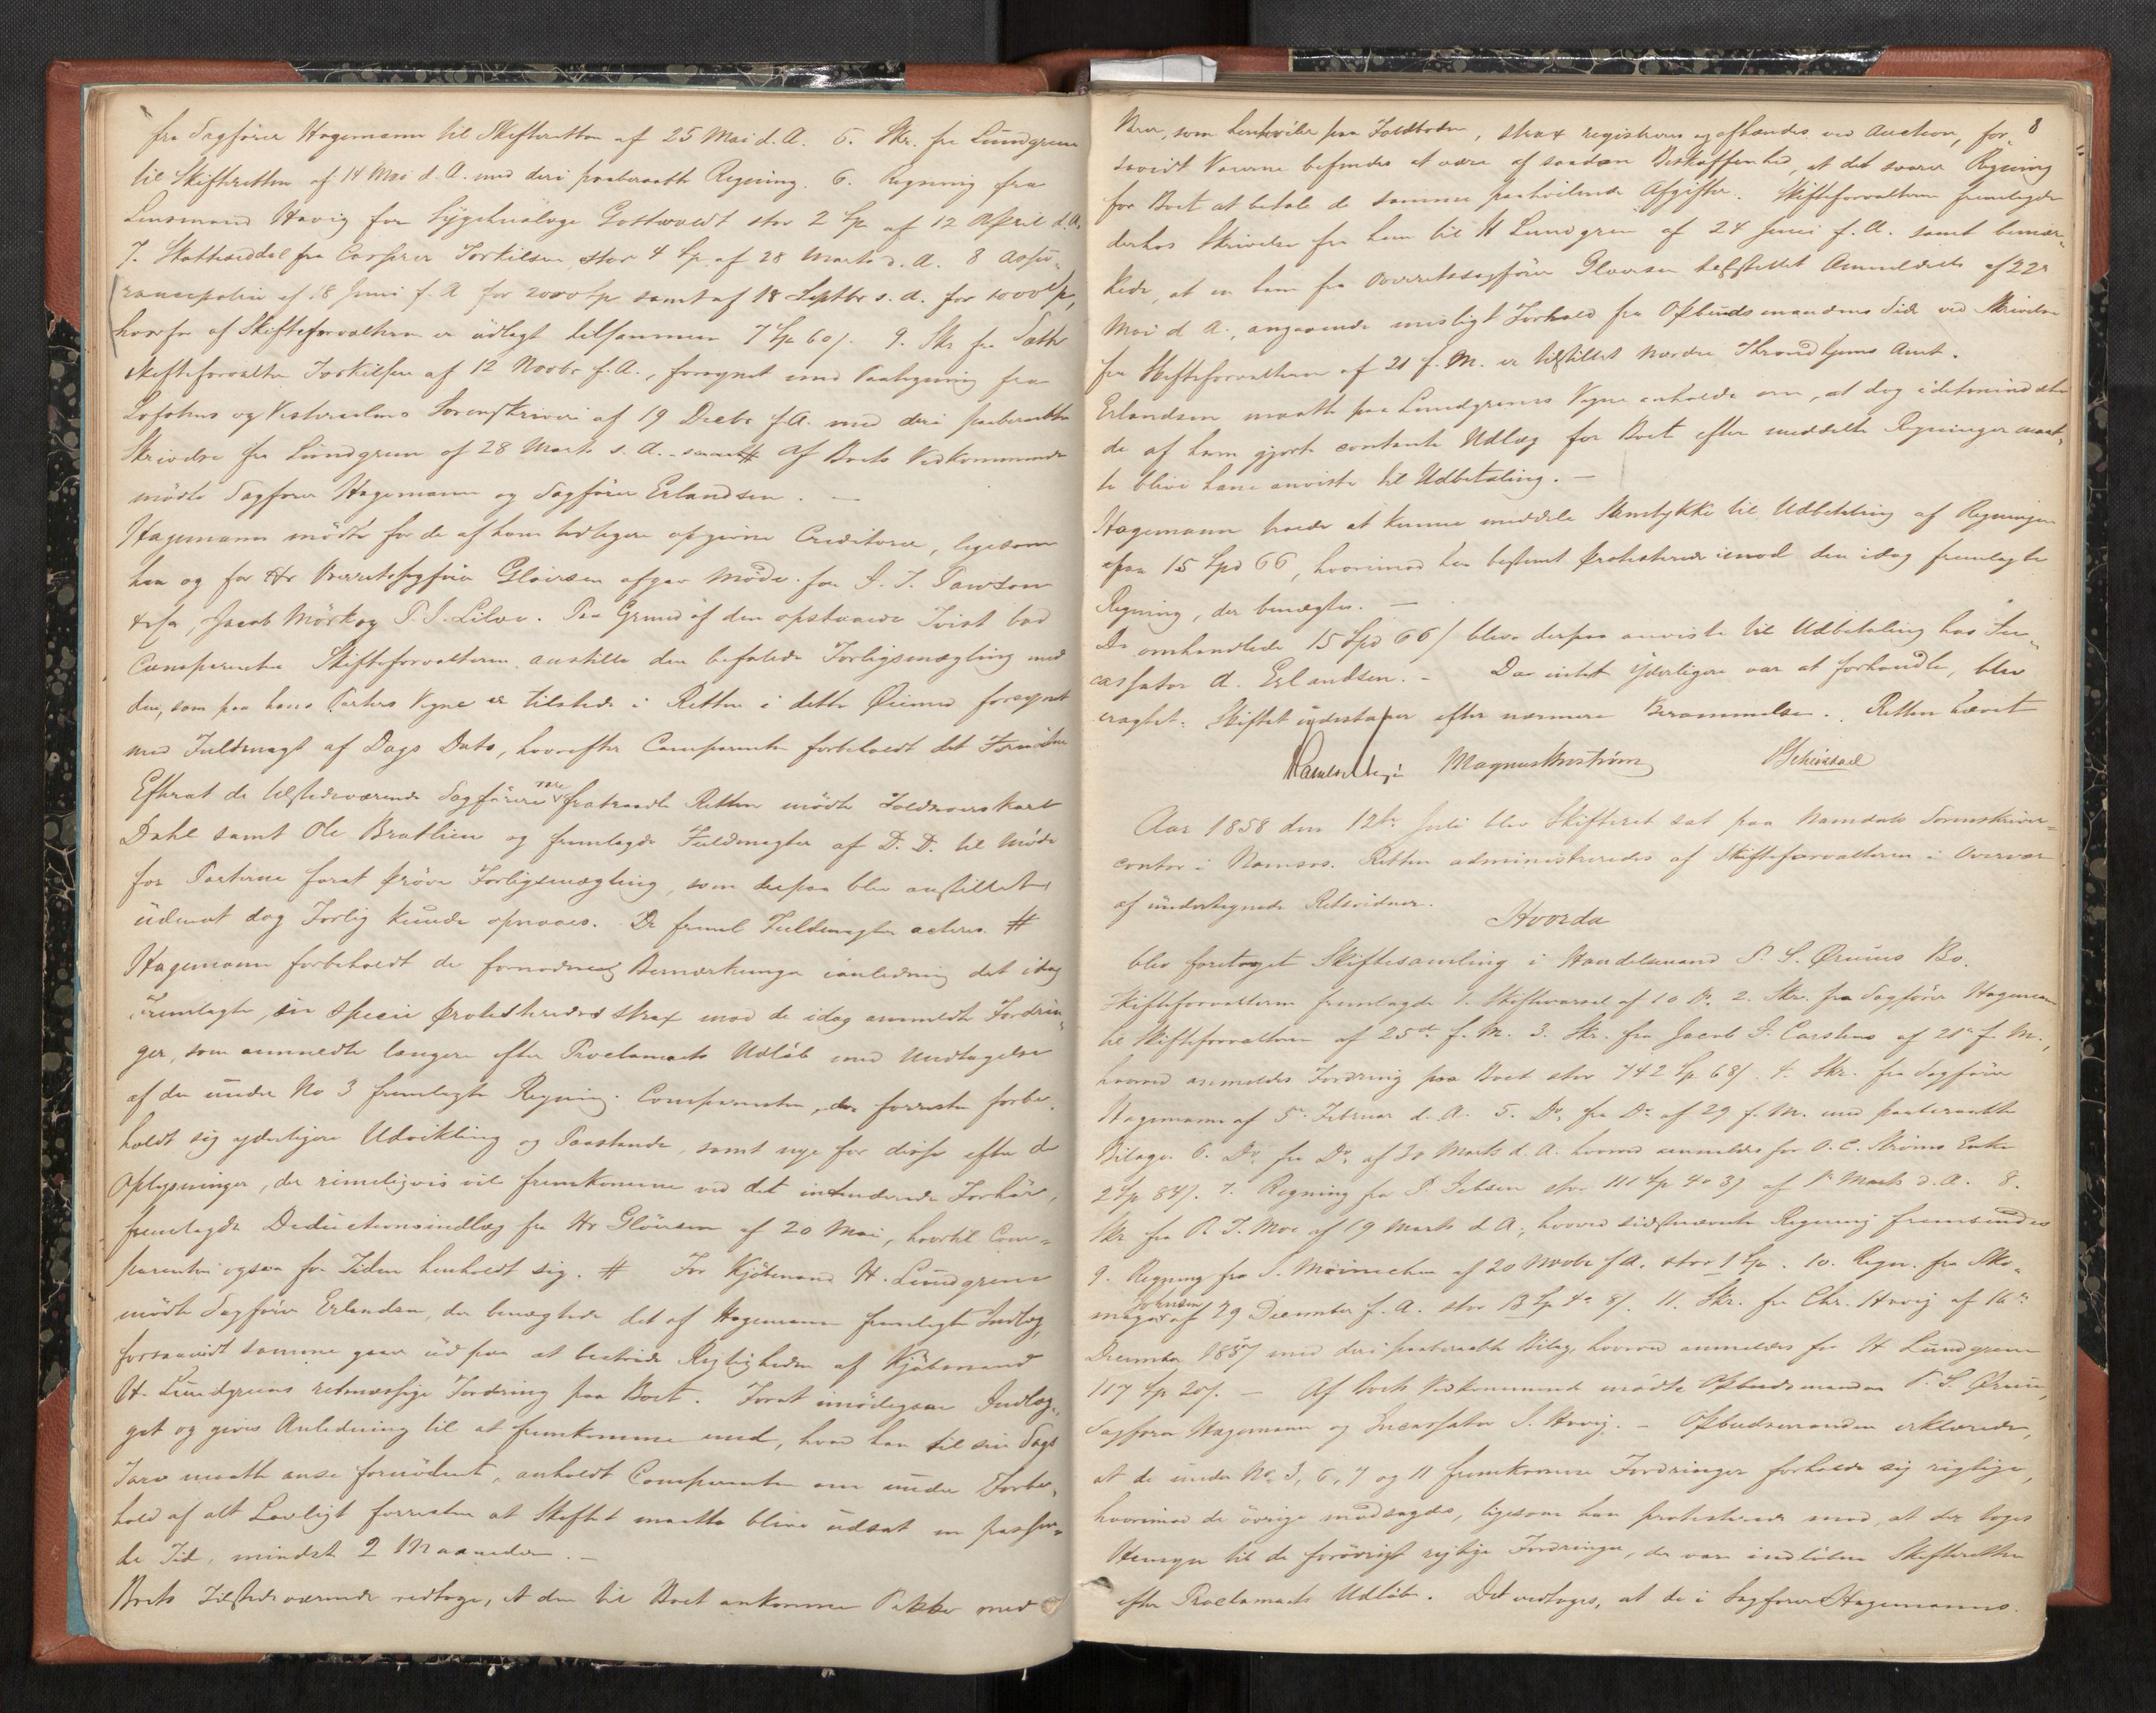 fra Sagfører Hagemann til Skifteretten af 25 Mai d. A. 5. Skr. fra Lundgreen
til Skifteretten af 14 Mai d. A. med deri paaberaabte Regning. 6. Regning fra
Lensmand Havig for Sygehuuslæge Gottwaldt stor 2 Sp af 12 April d. A.
7. Skatteseddel fra Casperus Torkilsen stor 4 Sp. af 28 Marts d. A. 8 Assu-
rancepolice af 18 Juni f. A for 2000 Sp samt af 18 Septbr s. A. for 1000 Sp,
hvorfor af Skifteforvalteren er udlagt tilsammen 7 Sp 60 s. 9. Skr fra Sætte
skifteforvalter Torkilsen af 12 Novbr f. A., forsynet med Paategning fra
Lofotens og Vesteraalens Sorenskriveri af 19 Decbr f. A. med deri paaberaabte
Skrivelse fra Lundgreen af 28 Marts s. A. # Af Boets Vedkommende
mødte Sagfører Hagemann og Sagfører Erlandsen. —
Hagemann mødte for de af ham tidligere opgivne Creditorer, ligesom
han og for Hr Overretssagfører Gløersen afgav Møde for J. T. Pawson
Jacob Mørk og P. J. Lilve. Paa Grund af den opstaaede Tvist bad
Comparenten Skifteforvalteren anstille den befalede Forligsmægling med
den, som paa hans Parters Vegne er tilstede i Retten i dette Øiemed forsynet
med Fuldmagt af Dags Dato, hvorefter Comparenten forbeholdt det Fornødne
Efterat de tilstedeværende Sagførere fratraadte Retten mødte Toldroerskarl
Dahl samt Ole Bratlien og fremlagde Fuldmagter af D. D. til Møde
for Parterne forat prøve Forligsmægling, som derpaa blev anstillet
udenat dog Forlig kunde opnaaes. De freml Fuldmagter acteres. #
Hagemann forbeholdt de fornødne Bemærkninger i anledning det idag
fremlagte, in specie protesteredes strax mod de idag anmeldte Fordrin-
ger, som anmeldte længere efter Proclamaets Udløb med Undtagelse
af den under No 3 fremlagte Regning. Comparenten, der forresten forbe-
holdt sig yderligere Udvikling og Paastande, samt nye for disse efter de
Oplysninger, der rimeligvis vil fremkomme ved det intenderede Forhør,
fremlagde Deductionsindlæg fra Hr Gløersen af 20 Mai, hvortil Com-
parenten ogsaa for Tiden henholdt sig. # For Kjøbmand H. Lundgreen
mødte Sagfører Erlandsen, der benægtede det af Hagemann fremlagte Indlæg,
forsaavidt samme gaar ud paa at bestride Rigtigheden af Kjøbmand
H. Lundgreens retmæssige Fordring paa Boet. Forat imødegaae Indlæg-
get og gives Anledning til at fremkomme med, hvad han til sin Sags
Tarv maatte anse fornødent, anholdt Comparenten om under Forbe-
hold af alt Lovligt forresten at Skiftet maatte blive udsat en passen-
de Tid, mindst 2 Maaneder. —
Boets Tilstedeværende vedtoge, at den til Boet ankomne Pakke med
8
Varer, som henhviler paa Toldboden, strax registreres og afhændes ved Auction, for
savidt Varerne befindes at være af saadan Beskaffenhed, at det svarer Regning
for Boet at betale de samme paahvilende Afgifter. Skifteforvalteren fremlagde
derhos Skrivelse fra ham til H Lundgreen af 24 Juni f. A. samt bemær-
kede, at en ham fra Overretssagfører Gloersen tilstillet Anmeldelse af 22
Mai d A., angaaende misligt Forhold fra Opbudsmandens Side ved Skrivelse
fra Skifteforvalteren af 21 f. M. er tilstillet Nordre Throndhjems Amt.
Erlandsen maatte paa Lundgreens Vegne anholde om, at dog i det mindste
de af ham gjorte contante Udlæg for Boet efter meddelte Regninger maat-
te blive ham anviste til Udbetaling. —
Hagemann troede at kunne meddele Samtykke til Udbetaling af Regningen
paa 15 Spd 66, hvorimod han bestemt protesterede imod den idag fremlagte
Regning, der benægtes. —
De omhandlede 15 Spd 66 s bleve derpaa anviste til Udbetaling hos In-
cassator A. Erlandsen. — Da intet yderligere var at forhandle, blev
eragtet: Skiftet udestaaer efter nærmere Berammelse. Retten hævet
Magnus
Aar 1858 den 12te Juli blev Skifteret sat paa Namdals Sorenskriver-
contor i Namsos. Retten administreredes af Skifteforvalteren i Overvær
af undertegnede Retsvidner.
Hvorda
blev foretaget Skiftesamling i Handelsmand P. S. Ørums Bo.
Skifteforvalteren fremlagde 1. Skiftevarsel af 10 2. Skr. fra Sagfører Hagemann
til Skifteforvalteren af 25de f. M. 3. Skr. fra Jacob J. Carstens af 21 f. M.,
hvorved anmeldes Fordring paa Boet stor 742 Sp 68 s. 4. Skr. fra Sagfører
Hagemann af 5 Februar d. A. 5. Do fra Do af 29 f. M. med paaberaabte
Bilager 6. Do fra Do af 30 Marts d. A. hvorved anmeldes for O. C. Strøms Enke
2 Sp 84 s. 7. Regning fra P. Jebsen stor 111 Sp 4 o 3 s af 1 Marts d. A. 8.
Skr fra P. J. Moe af 19 Marts d A., hvorved sidstnævnte Regning fremsendes
9. Regning fra S. Møinichen af 20 Novbr f A. stor 1 Sp. 10. Regn. fra Sko-
mager Johnsen af 29 December f. A. stor 13 Sp 4 o 8 s. 11. Skr. fra Chr. Havig af 16
December 1857 med deri paaberaabte Bilag, hvorved anmeldes for H Lundgreen
117 Sp 20 s. — Af Boets Vedkommende mødte Opbudsmanden P. S. Ørum,
Sagfører Hagemann og Incassator S. Havig. — Opbudsmanden erklærede,
at de under No 3, 6, 7 og 11 fremkomne Fordringer forholde sig rigtige,
hvorimod de øvrige modsagdes, ligesom han protesterede mod, at der toges
Hensyn til de forøvrigt rigtige Fordringer, der vare indløbne Skifteretten
efter Proclamaets Udløb. Det vedtoges, at de i Sagfører Hagemanns